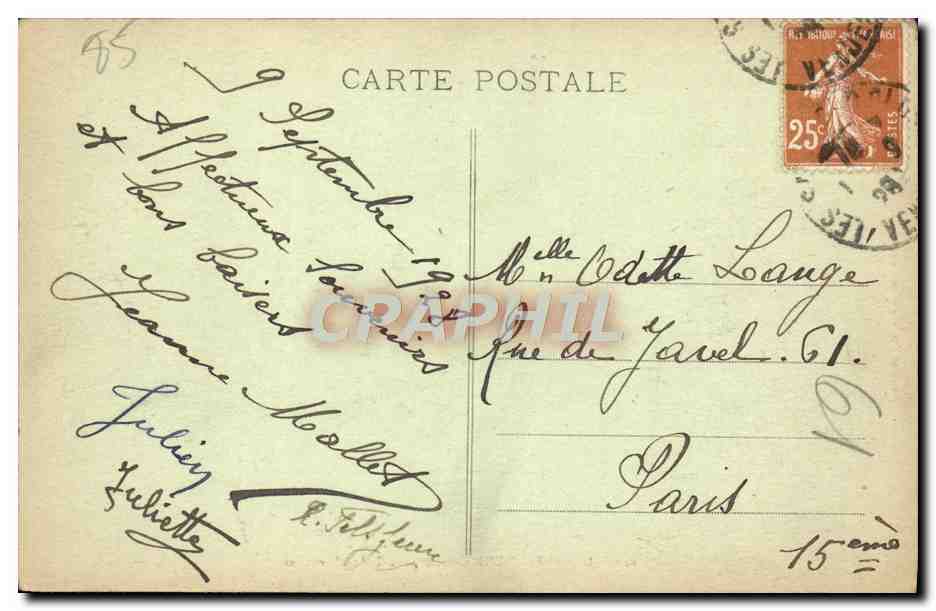 85
CARTE POSTALE
9 Septembre 1928
Affectueux Souvenirs
et bons baisers
Jeanne Mollet
Julien
Juliette
REPUBLIQUE FRANCAISE
25c
POSTES
Melle Odette Lange
Rue de Javel. 61.
61
Paris
15ème
CRAPHIL